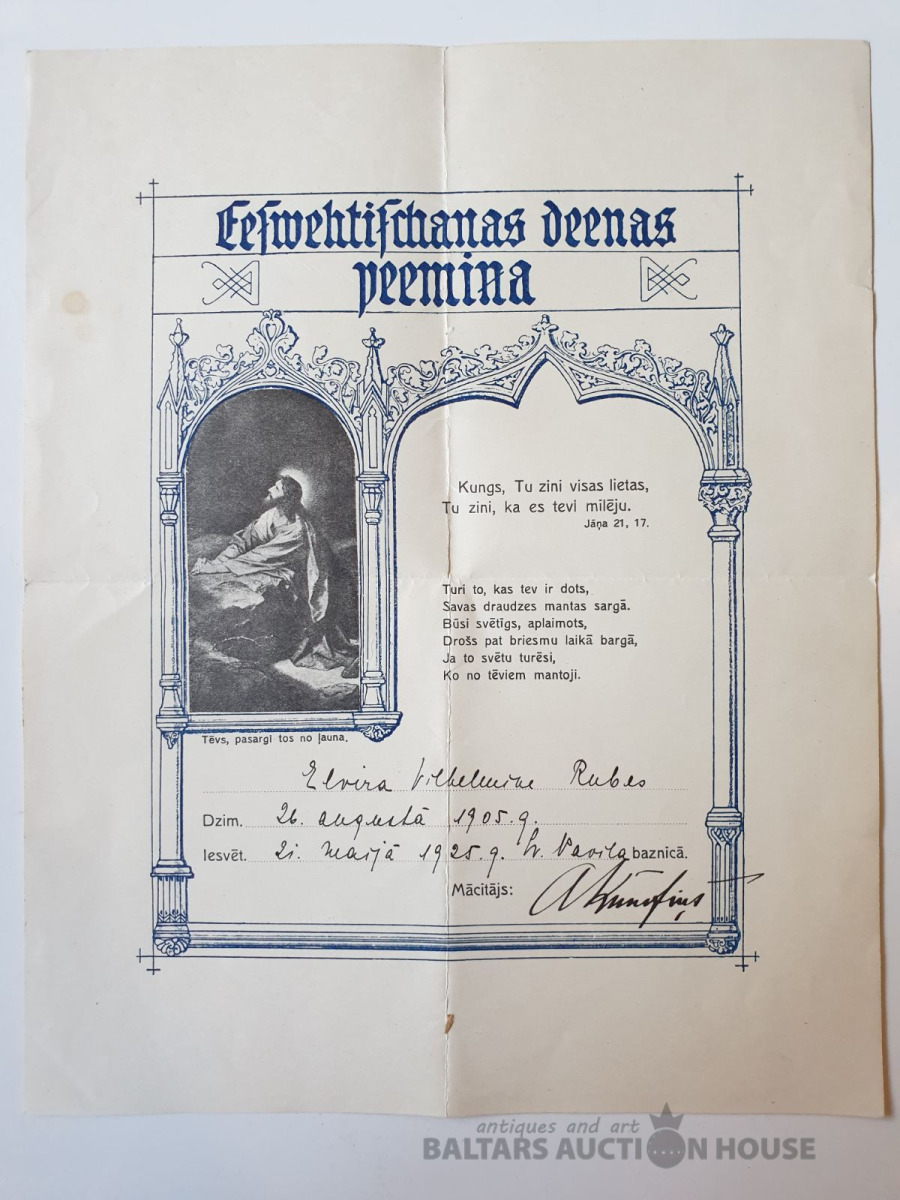 Eeſwehtiſchanas deenas
peemiņa
Kungs, Tu zini visas lietas,
Tu zini, ka es tevi mīlēju.
Jāņa 21, 17.
Turi to, kas tev ir dots,
Savas draudzes mantas sargā.
Būsi svētīgs, aplaimots,
Drošs pat briesmu laikā bargā,
Ja to svētu turēsi,
Ko no tēviem mantoji.
Tēvs, pasargi tos no ļauna.
Elvira Vilhelmine Rubes
Dzim. 26. augustā 1905. g.
Iesvēt. 21. maijā 1925. g. Sv. Pavila baznīcā.
Mācītājs:
antiques and art
BALTARS AUCTION HOUSE